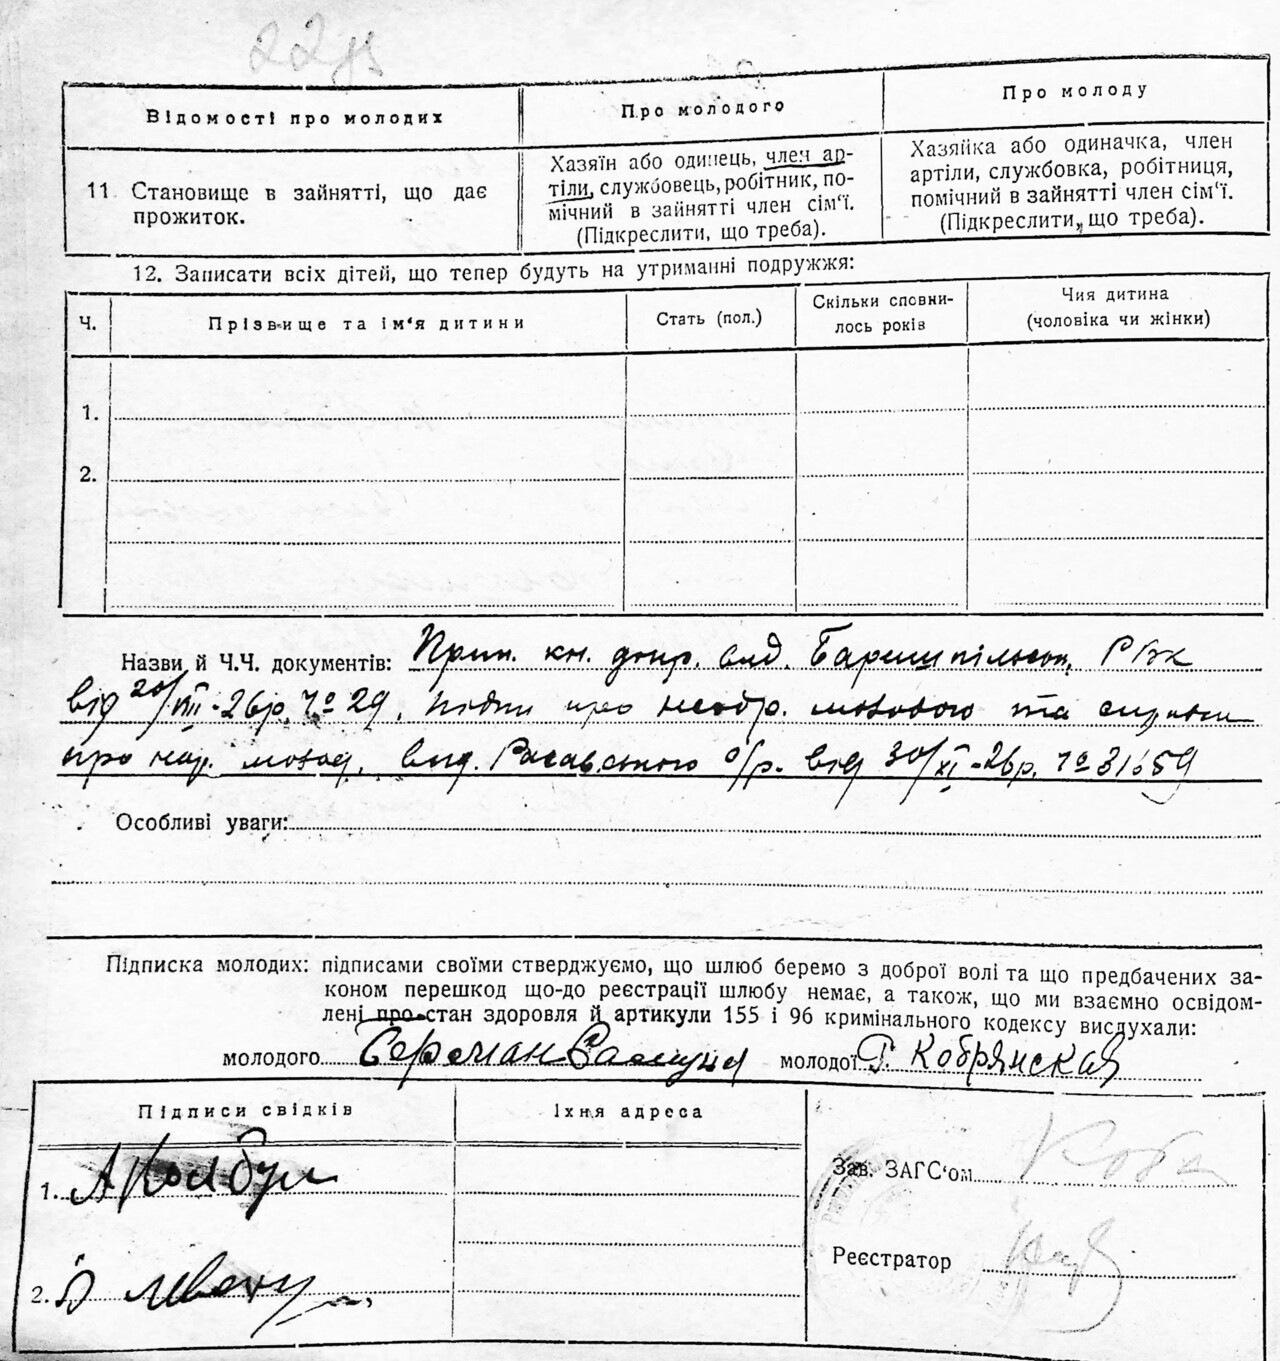 Відомості про молодих
Про молодого
Про молоду
11. Становище в зайнятті, що дає
прожиток.
Хазяїн або одинець, член ар-
тіли, службовець, робітник, по-
мічний в зайнятті член сім'ї.
(Підкреслити, що треба).
Хазяйка або одиначка, член
артіли, службовка, робітниця,
помічний в зайнятті член сім'ї.
(Підкреслити, що треба).
12. Записати всіх дітей, що тепер будуть на утриманні подружжя:
Ч.
Прізвище та ім'я дитини
Стать (пол.)
Скільки сповни-
лось років
Чия дитина
(чоловіка чи жінки)
1.
2.
Назви й Ч.Ч. документів: Прип. кн. допр. вид. Баришпільськ. РВК
від 20/VII-26р. № 29, про необр. молодого та справки
про нар. молод. вид. від 30/XI-26р. № 31659
Особливі уваги:
Підписка молодих: підписами своїми стверджуємо, що шлюб беремо з доброї волі та що предбачених за-
коном перешкод що-до реєстрації шлюбу немає, а також, що ми взаємно освідом-
лені про стан здоровля й артикули 155 і 96 кримінального кодексу вислухали:
молодого
молодої Г. Кобрянская
Підписи свідків
Їхня адреса
1.
2.
Зав. ЗАГС'ом
Реєстратор